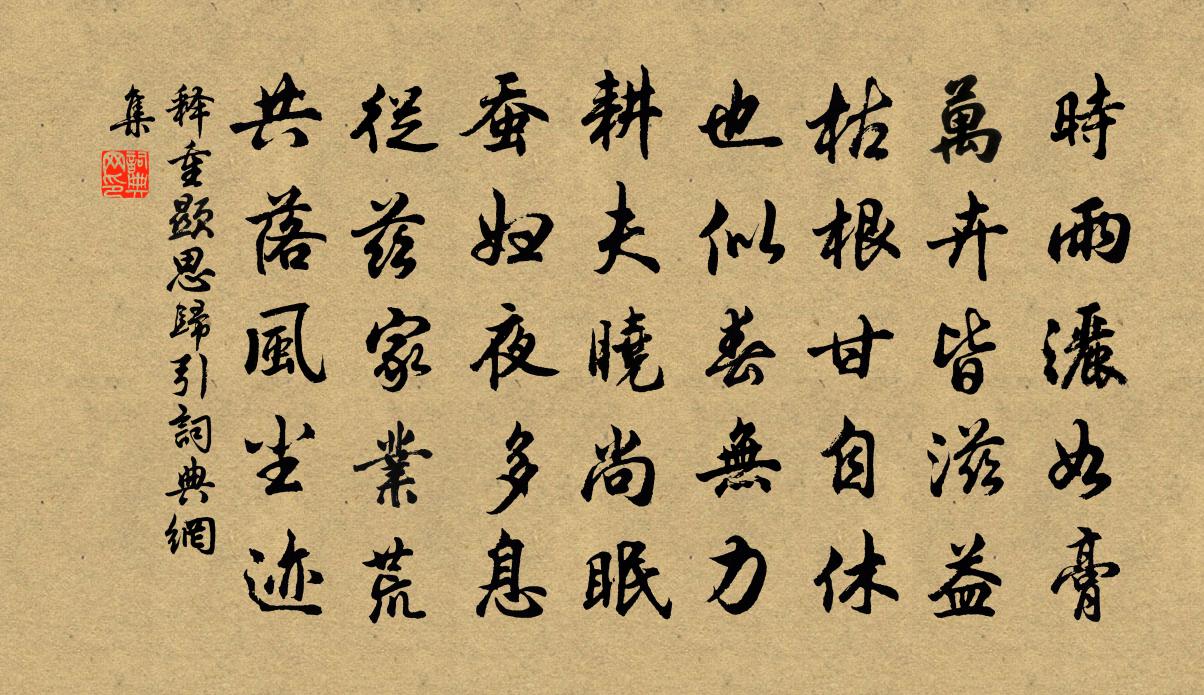 時雨灑如膏
萬卉皆滋益
枯根甘自休
也似春無力
耕夫曉尚眠
蚕妇夜多息
從茲家業荒
共落風尘迹
释重顯思歸引詞典網
集
詞典
网印